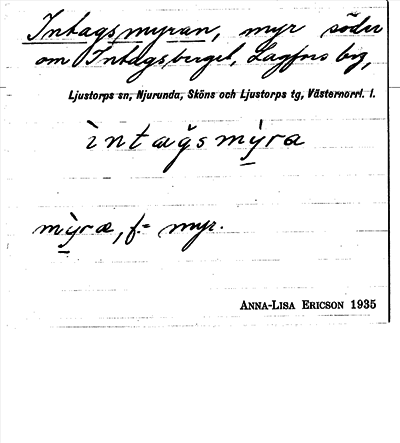 Intagsmyran, myr söder
om Intagsberget, Lagfors by,
Ljustorps sn, Njurunda, Sköns och Ljustorps tg, Västernorrl. l.
ìntagsmỳra
mỳra, f. = myr.
ANNA-LISA ERICSON 1935